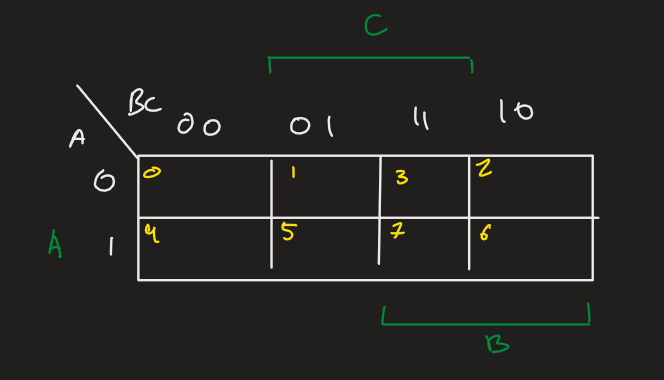 C
BC
A
00 01 11 10
0 0 1 3 2
A 1 4 5 7 6
B